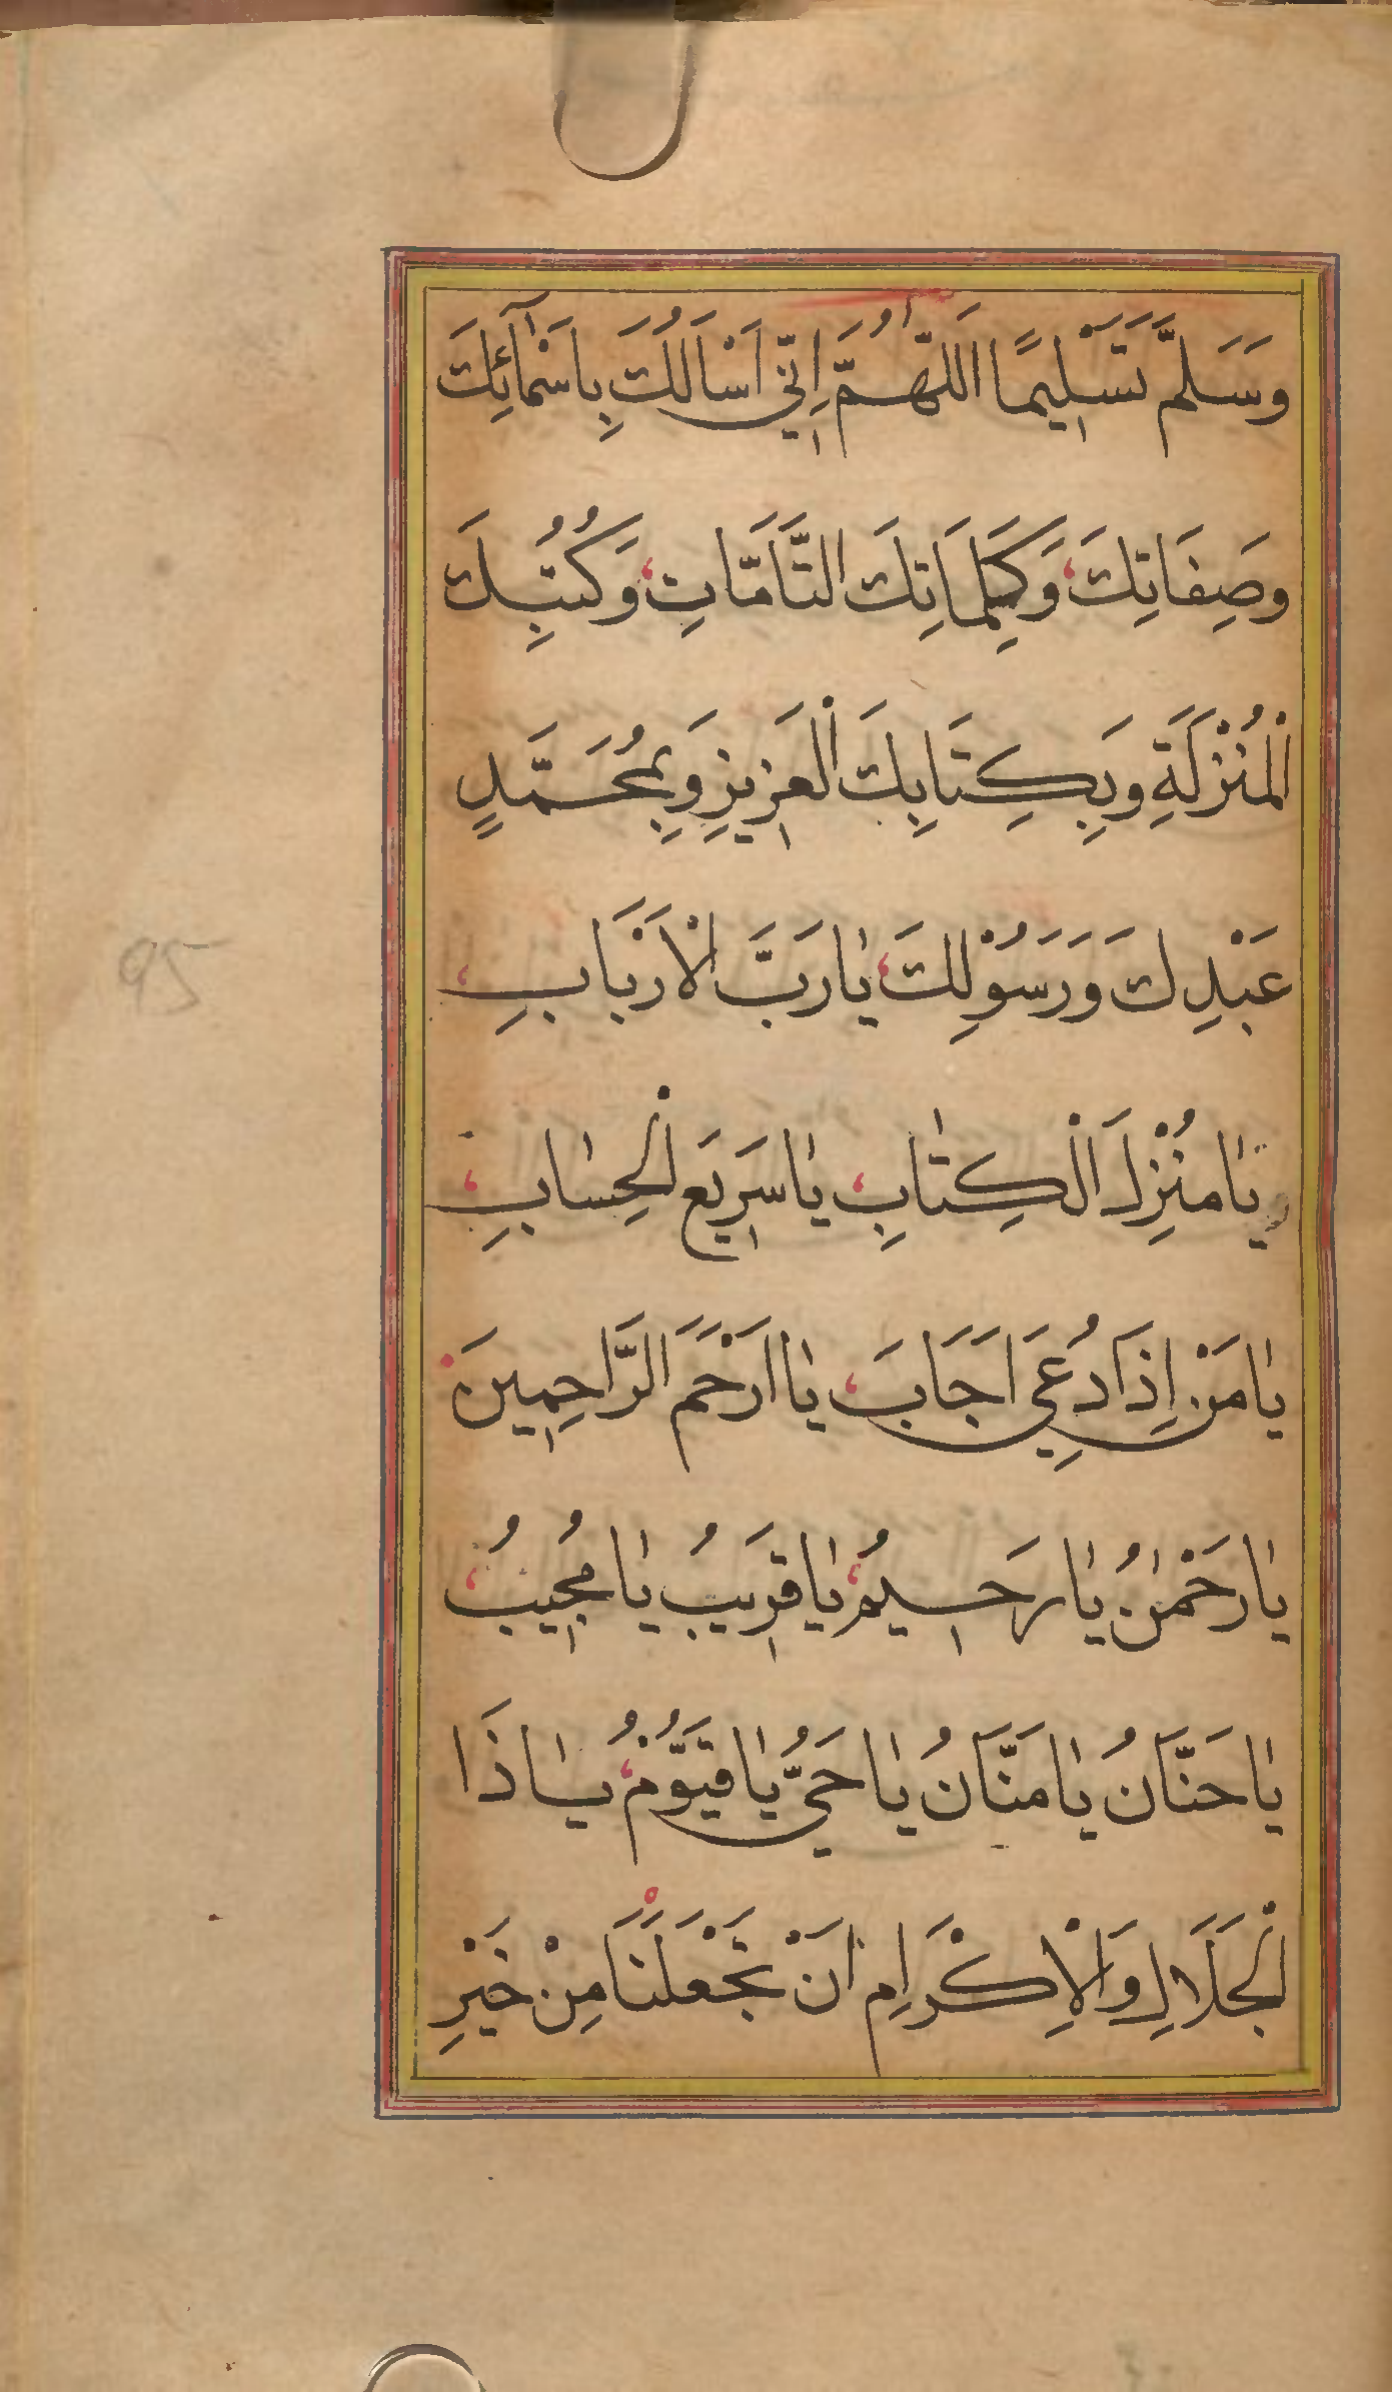 وَسَلَّمَ تَسْلِيمًا اَللّٰهُمَّ اِنّٖي اَسْاَلُكَ بِاَسْمَآئِكَ
وَصِفَاتِكَ، وَكَلِمَاتِكَ التَّآمَّاتِ، وَكُتُبِكَ
الْمُنْزَلَةِ وَبِكِتَابِكَ الْعَزٖيزِ وَبِمُحَمَّدٍ
عَبْدِكَ وَرَسُوْلِكَ، يٰا رَبَّ الْاَرْبَابِ،
يٰا مُنْزِلَ الْكِتٰابِ، يٰا سَرٖيعَ الْحِسٰابِ،
يٰا مَنْ اِذَا دُعِيَ اَجَابَ، يٰا اَرْحَمَ الرَّاحِمٖينَ
يٰا رَحْمٰنُ يٰا رَحٖيمُ، يٰا قَرٖيبُ يٰا مُجٖيبُ،
يٰا حَنَّانُ يٰا مَنَّانُ يٰا حَيُّ يٰا قَيُّوْمُ، يٰا ذَا
الْجَلَالِ وَالْاِكْرَامِ اَنْ تَجْعَلَنَا مِنْ خَيْرِ
95